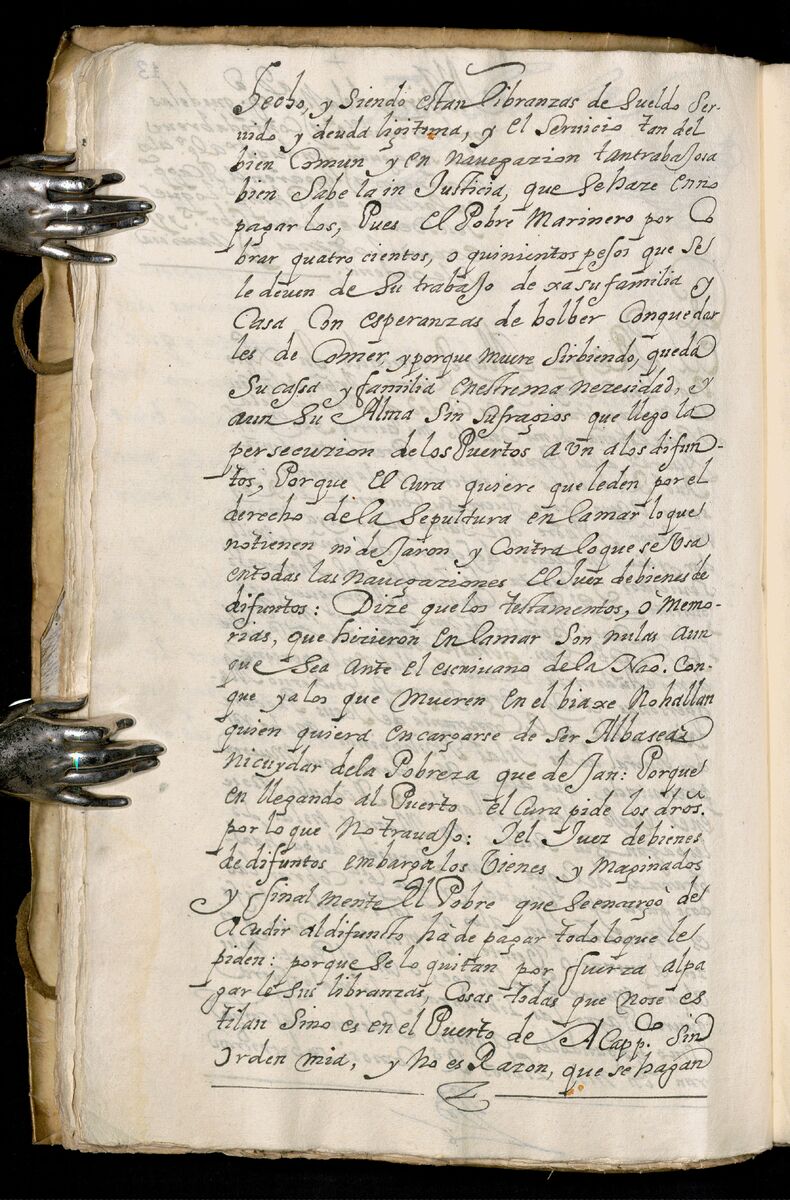 hecho, y siendo estan libranzas de sueldo ser-
uido y deuda ligitima, y el seruicio tan del
bien Comun y en nauegazion tantrabaJosa
bien sabe la in Justicia, que sehaze enno
pagarlos, Pues el Pobre Marinero por Co
brar quatro cientos, o quinientos pesos que se
le deuen de su trabaJo de xa su familia y
Casa Con esperanzas de bolber Conque dar
les de Comer, y porque muere sirbiendo, queda
su cassa y familia en estrema nezesidad, y
aun su Alma sin sufragios que llego la
persecuzion delos Puertos aun alos difun-
tos, Porque el Cura quiere queleden por el
derecho dela sepultura en lamar loque
notienen ni deJaron y Contra loque se Vsa
entodas las nauegaziones El Juez debienes de
difuntos: Dize quelos testamentos, ò memo-
rias, que hizieron en lamar son nulas aun
que sea ante el escriuano dela Nao. Con-
que ya los que mueren en el biaxe Nohallan
quien quiera encargarse de ser Albaseaz
Nicuydar dela Pobreza que deJan: Porque
en llegando al Puerto el Cura pide los dros.
por lo que No trauaJo: Iel Juez debienes
de difuntos embarga los Vienes y Maginados
y finalmente Al Pobre que seencargò de
Acudir aldifuncto hà de pagar todo loque le
piden: porque se lo quitan por fuerza alpa
garle sus libranzas, Cosas todas que nose es
tilan sino es en el Puerto de ACappco. sin
Orden mia, y no es Razon, que se hagan